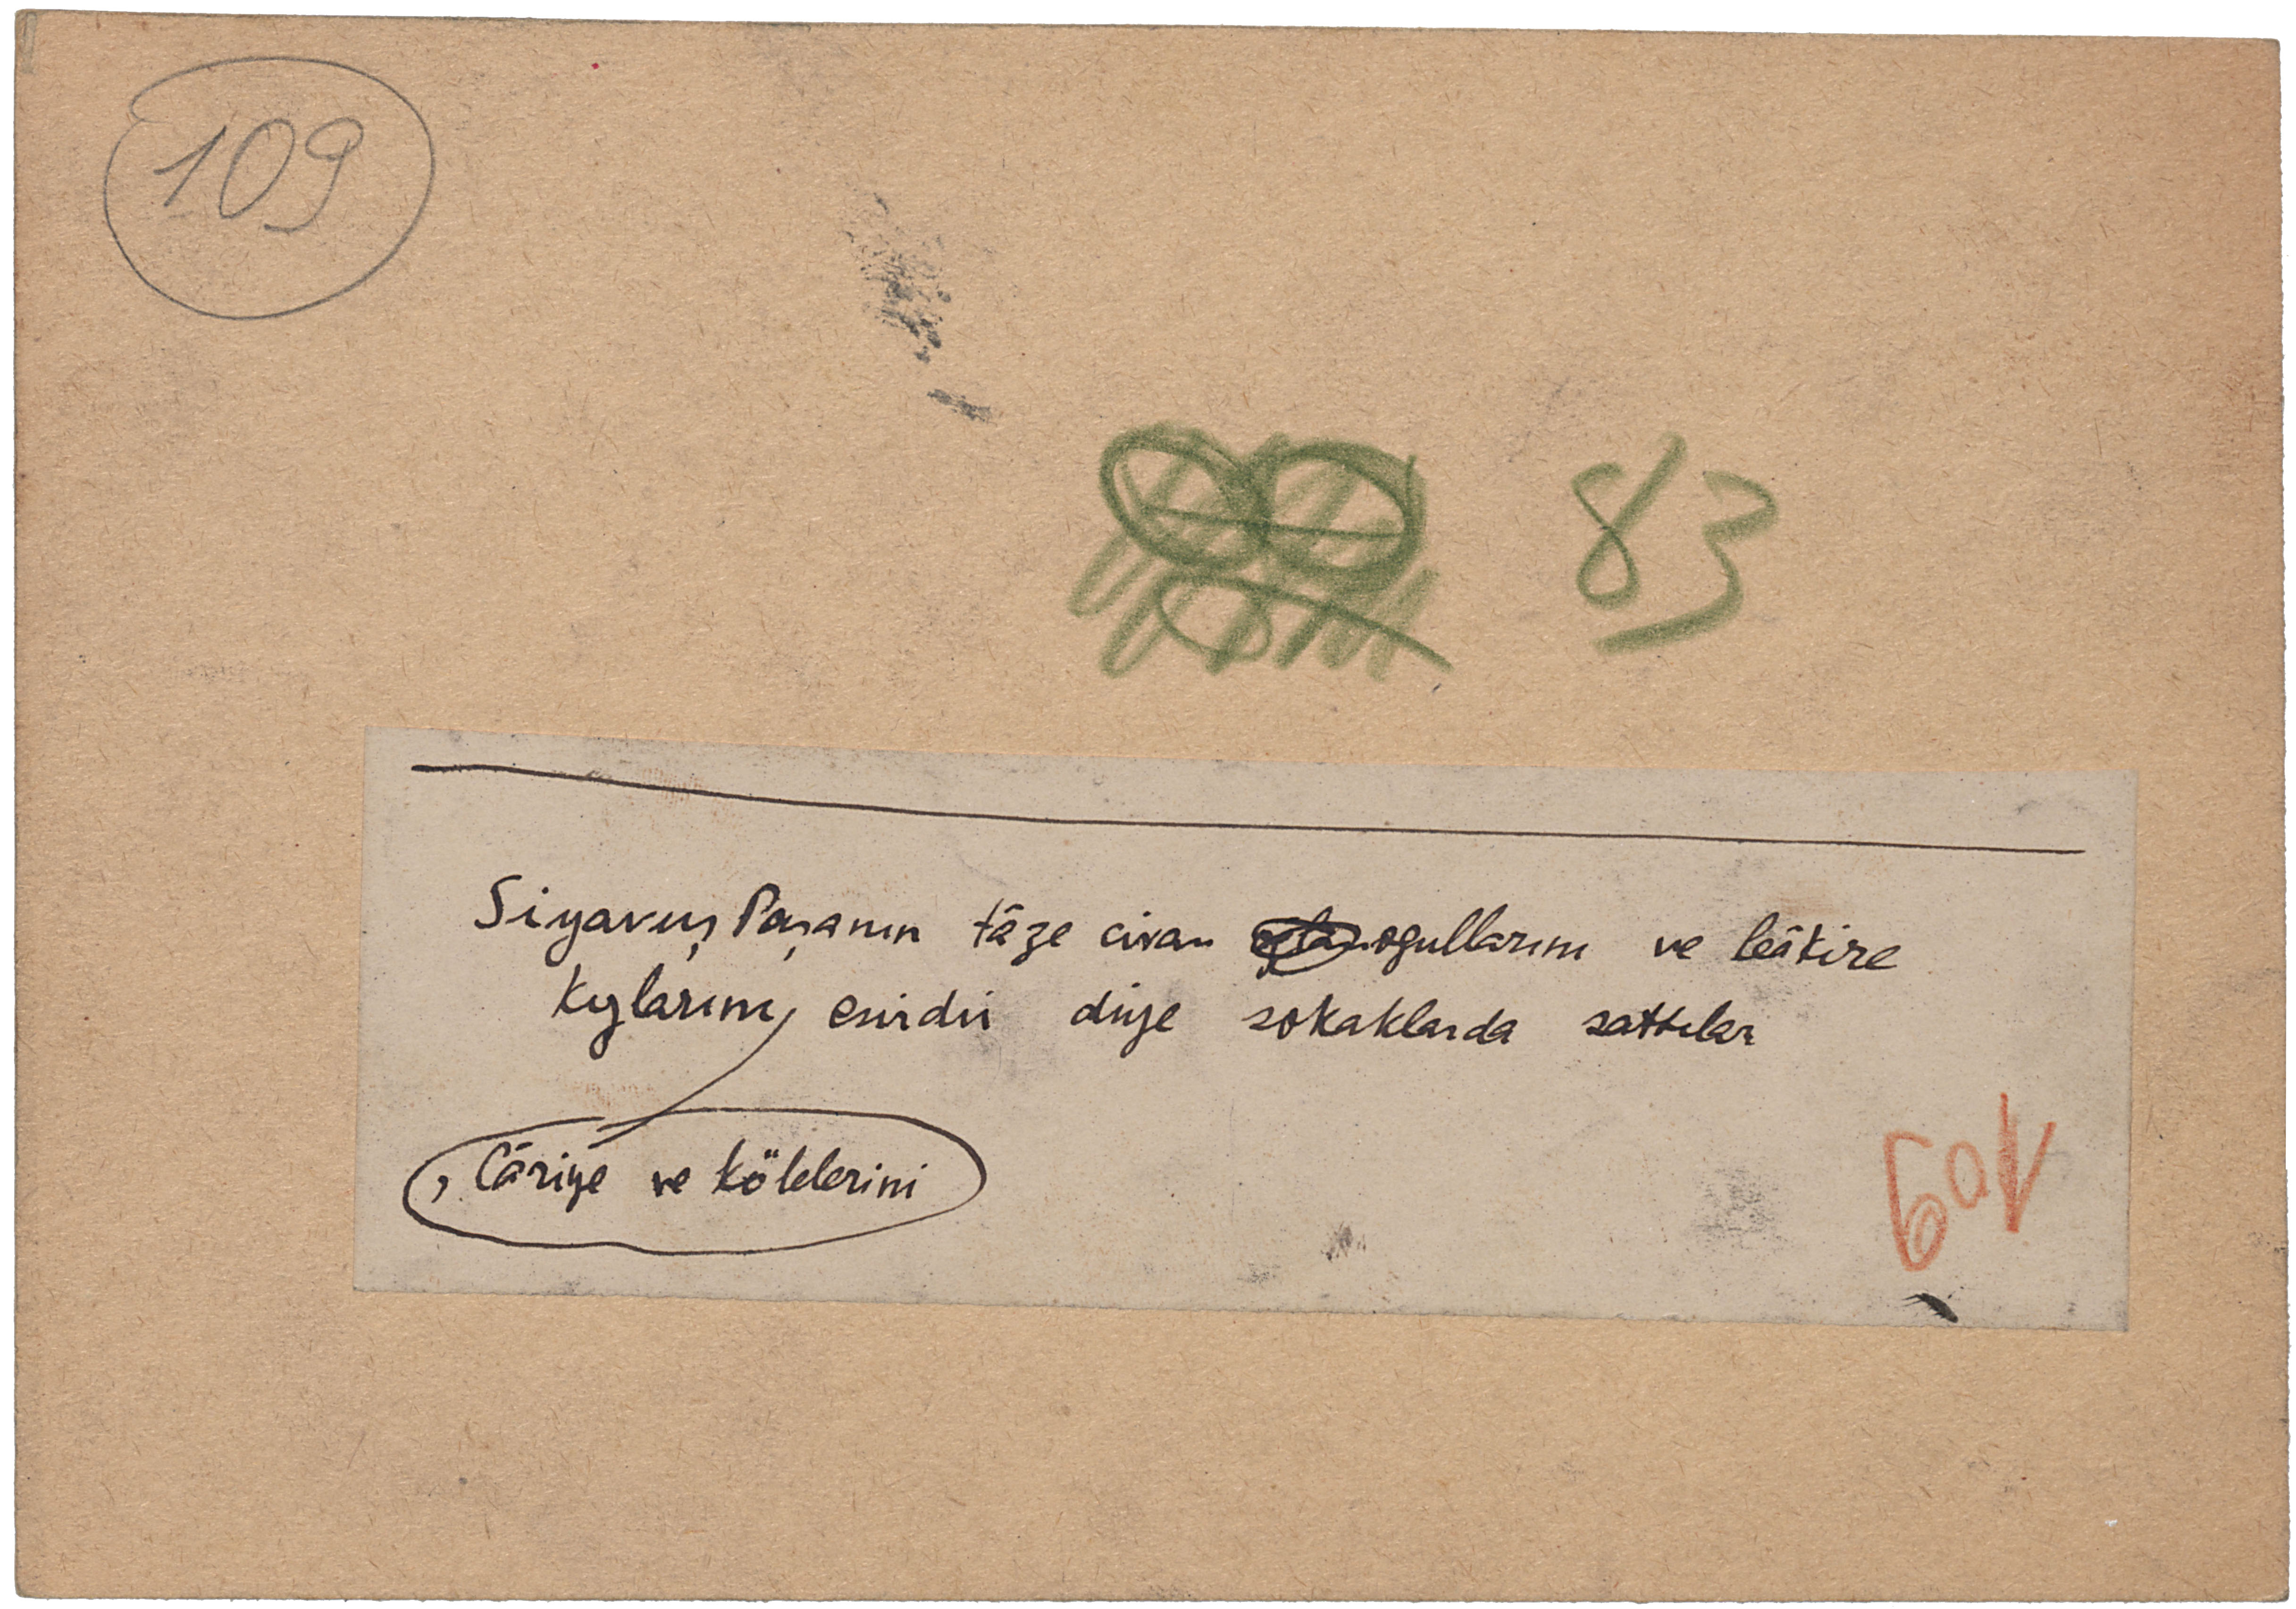 109
83
Siyavuş Paşanın tâze civan oğullarını ve bâkire
kızlarını, esirdir diye sokaklarda sattılar
, Câriye ve kölelerini
109